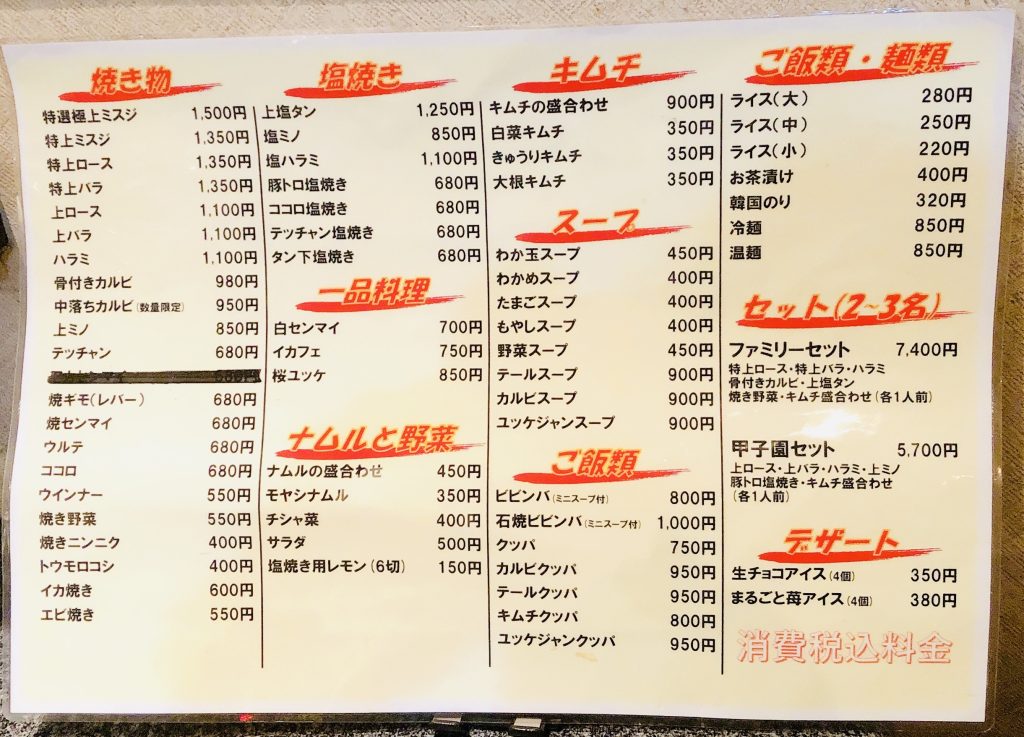 焼き物
特選極上ミスジ 1,500円
特上ミスジ 1,350円
特上ロース 1,350円
特上バラ 1,350円
上ロース 1,100円
上バラ 1,100円
ハラミ 1,100円
骨付きカルビ 980円
中落ちカルビ(数量限定) 950円
上ミノ 850円
テッチャン 680円
焼ギモ(レバー) 680円
焼センマイ 680円
ウルテ 680円
ココロ 680円
ウインナー 550円
焼き野菜 550円
焼きニンニク 400円
トウモロコシ 400円
イカ焼き 600円
エビ焼き 550円
塩焼き
上塩タン 1,250円
塩ミノ 850円
塩ハラミ 1,100円
豚トロ塩焼き 680円
ココロ塩焼き 680円
テッチャン塩焼き 680円
タン下塩焼き 680円
一品料理
白センマイ 700円
イカフェ 750円
桜ユッケ 850円
ナムルと野菜
ナムルの盛合わせ 450円
モヤシナムル 350円
チシャ菜 400円
サラダ 500円
塩焼き用レモン(6切) 150円
キムチ
キムチの盛合わせ 900円
白菜キムチ 350円
きゅうりキムチ 350円
大根キムチ 350円
スープ
わか玉スープ 450円
わかめスープ 400円
たまごスープ 400円
もやしスープ 400円
野菜スープ 450円
テールスープ 900円
カルビスープ 900円
ユッケジャンスープ 900円
ご飯類
ビビンバ(ミニスープ付) 800円
石焼ビビンバ(ミニスープ付) 1,000円
クッパ 750円
カルビクッパ 950円
テールクッパ 950円
キムチクッパ 800円
ユッケジャンクッパ 950円
ご飯類・麺類
ライス(大) 280円
ライス(中) 250円
ライス(小) 220円
お茶漬け 400円
韓国のり 320円
冷麺 850円
温麺 850円
セット(2~3名)
ファミリーセット 7,400円
特上ロース・特上バラ・ハラミ
骨付きカルビ・上塩タン
焼き野菜・キムチ盛合わせ(各1人前)
甲子園セット 5,700円
上ロース・上バラ・ハラミ・上ミノ
豚トロ塩焼き・キムチ盛合わせ
(各1人前)
デザート
生チョコアイス(4個) 350円
まるごと苺アイス(4個) 380円
消費税込料金